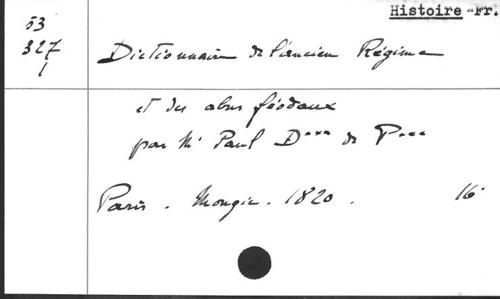 Histoire-Fr.
53
327
1
Dictionnaire de l'ancien Régime
et des abus féodaux
par Mr Paul D*** de P***
Paris. Mongie. 1820. 16°